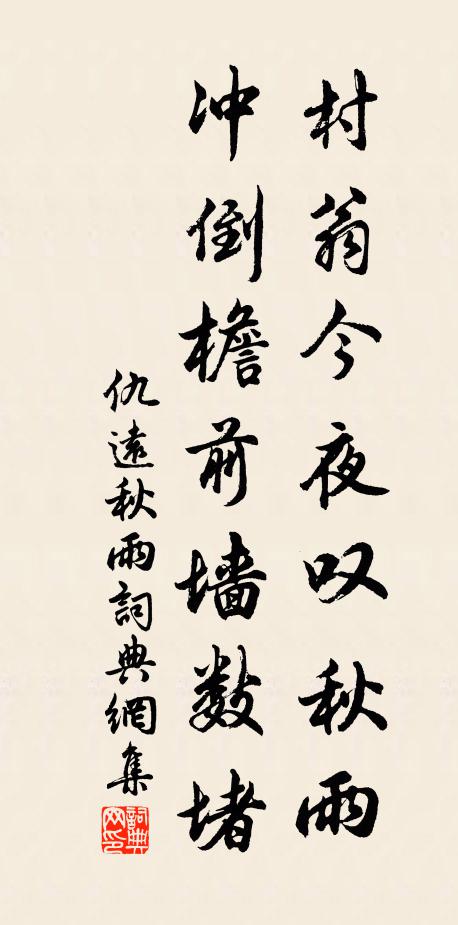 村翁今夜叹秋雨
冲倒檐前墙数堵
仇遠秋雨詞典網集
詞典網印